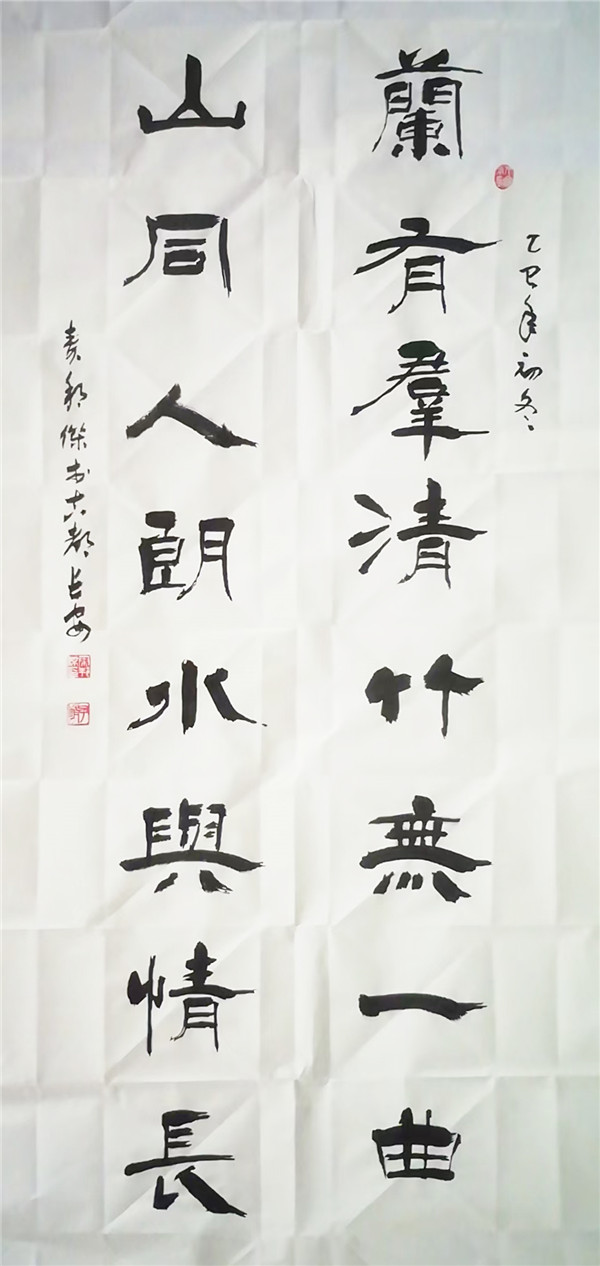 乙巳年初冬
蘭有羣清竹無一曲
山同人朗水與情長
傑书古都长安